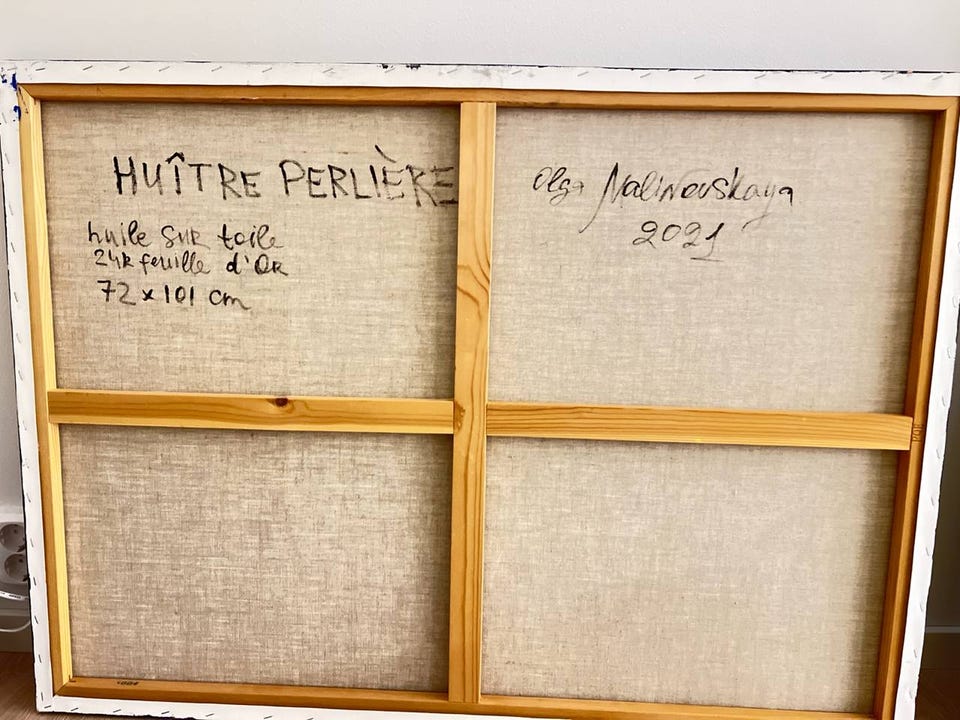 HUÎTRE PERLIÈRE
huile sur toile
24k feuille d'Or
72 x 101 cm
Olga Malinovskaya
2021